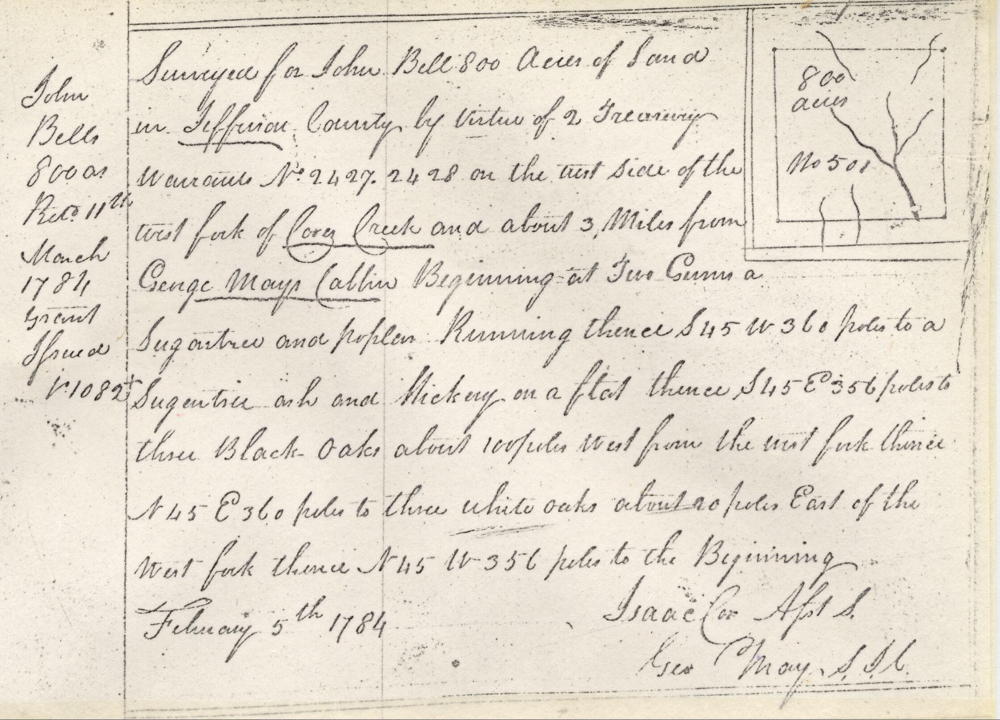 John
Bells
800 as
Recd 11th
March
1784
Grant
Issued
No 1082
Surveyed for John Bell 800 Acres of Land
in Jefferson County by Virtue of 2 Treasury
Warrants No. 2427. 2428 on the west side of the
west fork of Coxes Creek and about 3 Miles from
George Mays Cabbin Beginning at Two Gums a
Sugartree and poplar Running thence S 45 W 360 poles to a
Sugartree ash and Hickory on a flat thence S 45 E 356 poles to
three Black Oaks about 100 poles West from the west fork thence
N 45 E 360 poles to three white oaks about 20 poles East of the
West fork thence N 45 W 356 poles to the Beginning
February 5th 1784
Isaac Cox Asst S.
Geo May S. J. C.
800
acres
No 501